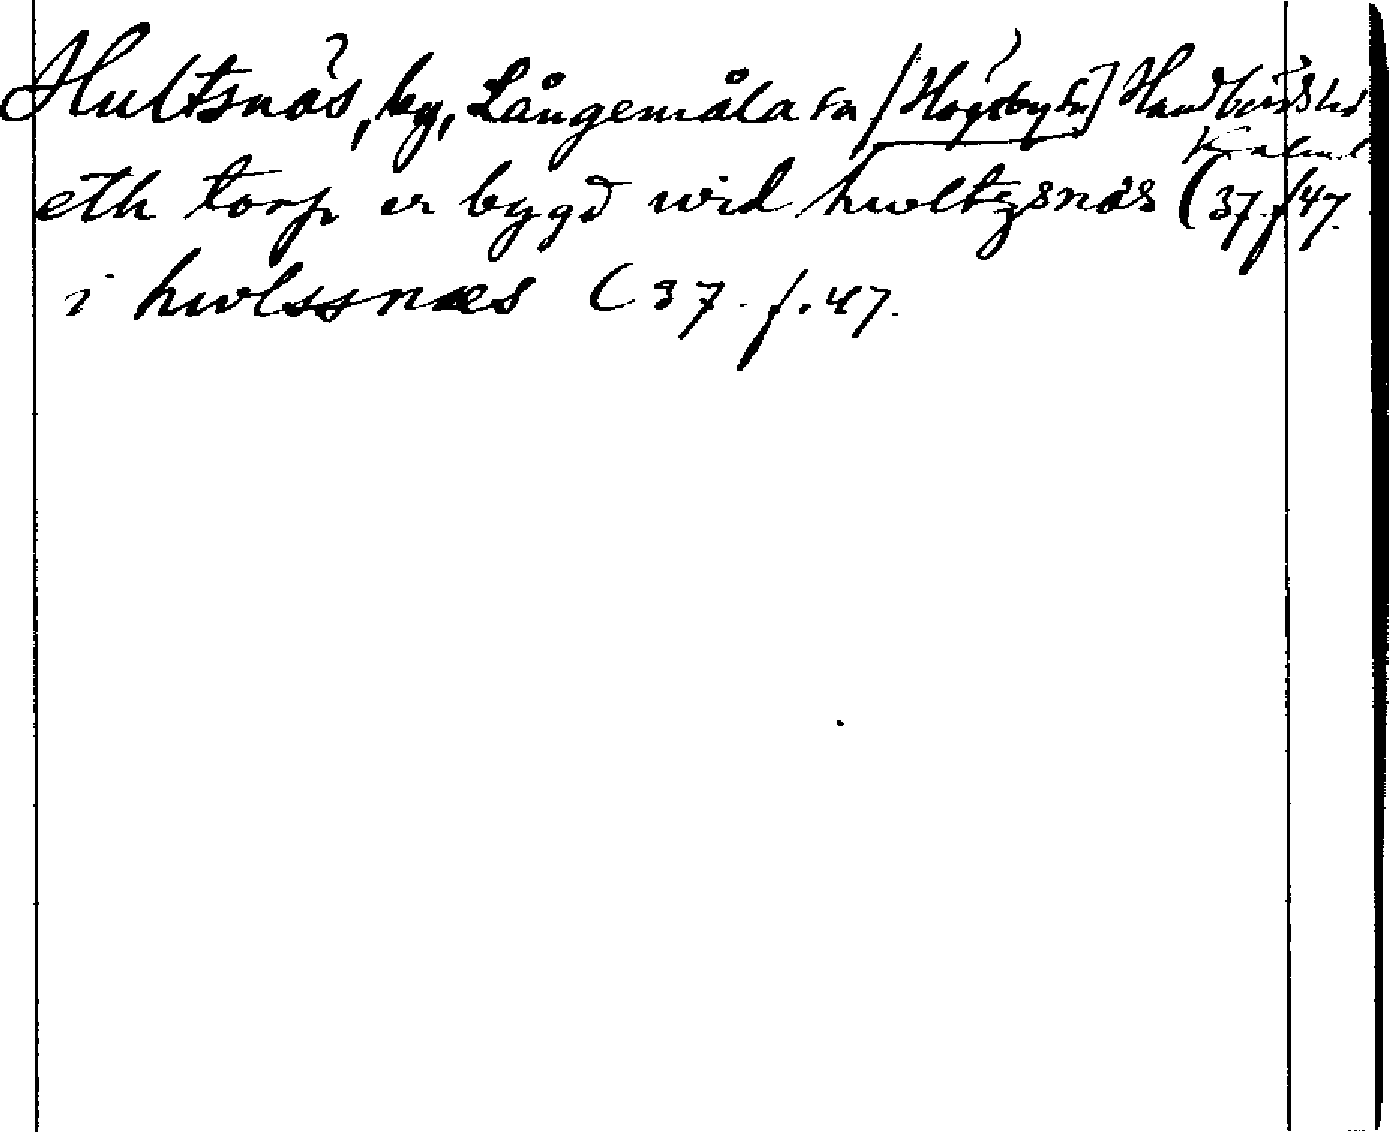 Hultsnäs, by, Långemåla sn [Högsby sn] Handbörds hd
Kalm l
eth torp er bygd wid hwltzsnäs (37. f 47.
i hwlssnæs (37. f. 47.